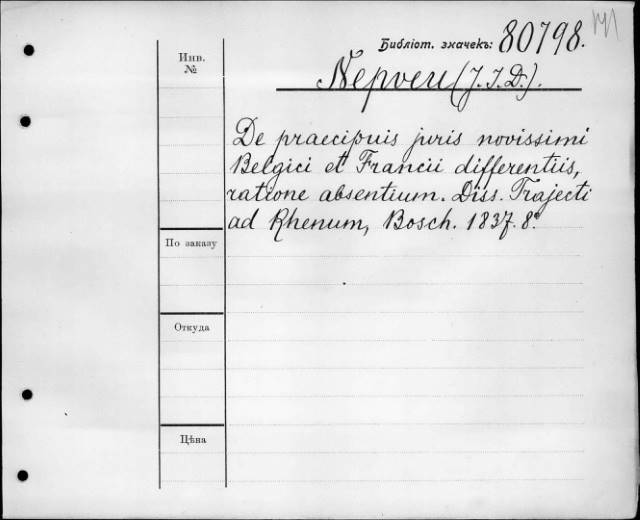 Библіот. значекъ: 80798.
Инв.
№
Nepveu (J. I. D.).
De praecipuis juris novissimi
Belgici et Francii differentiis,
ratione absentium. Diss. Trajecti
ad Rhenum, Bosch. 1837. 8°.
По заказу
Откуда
Цѣна